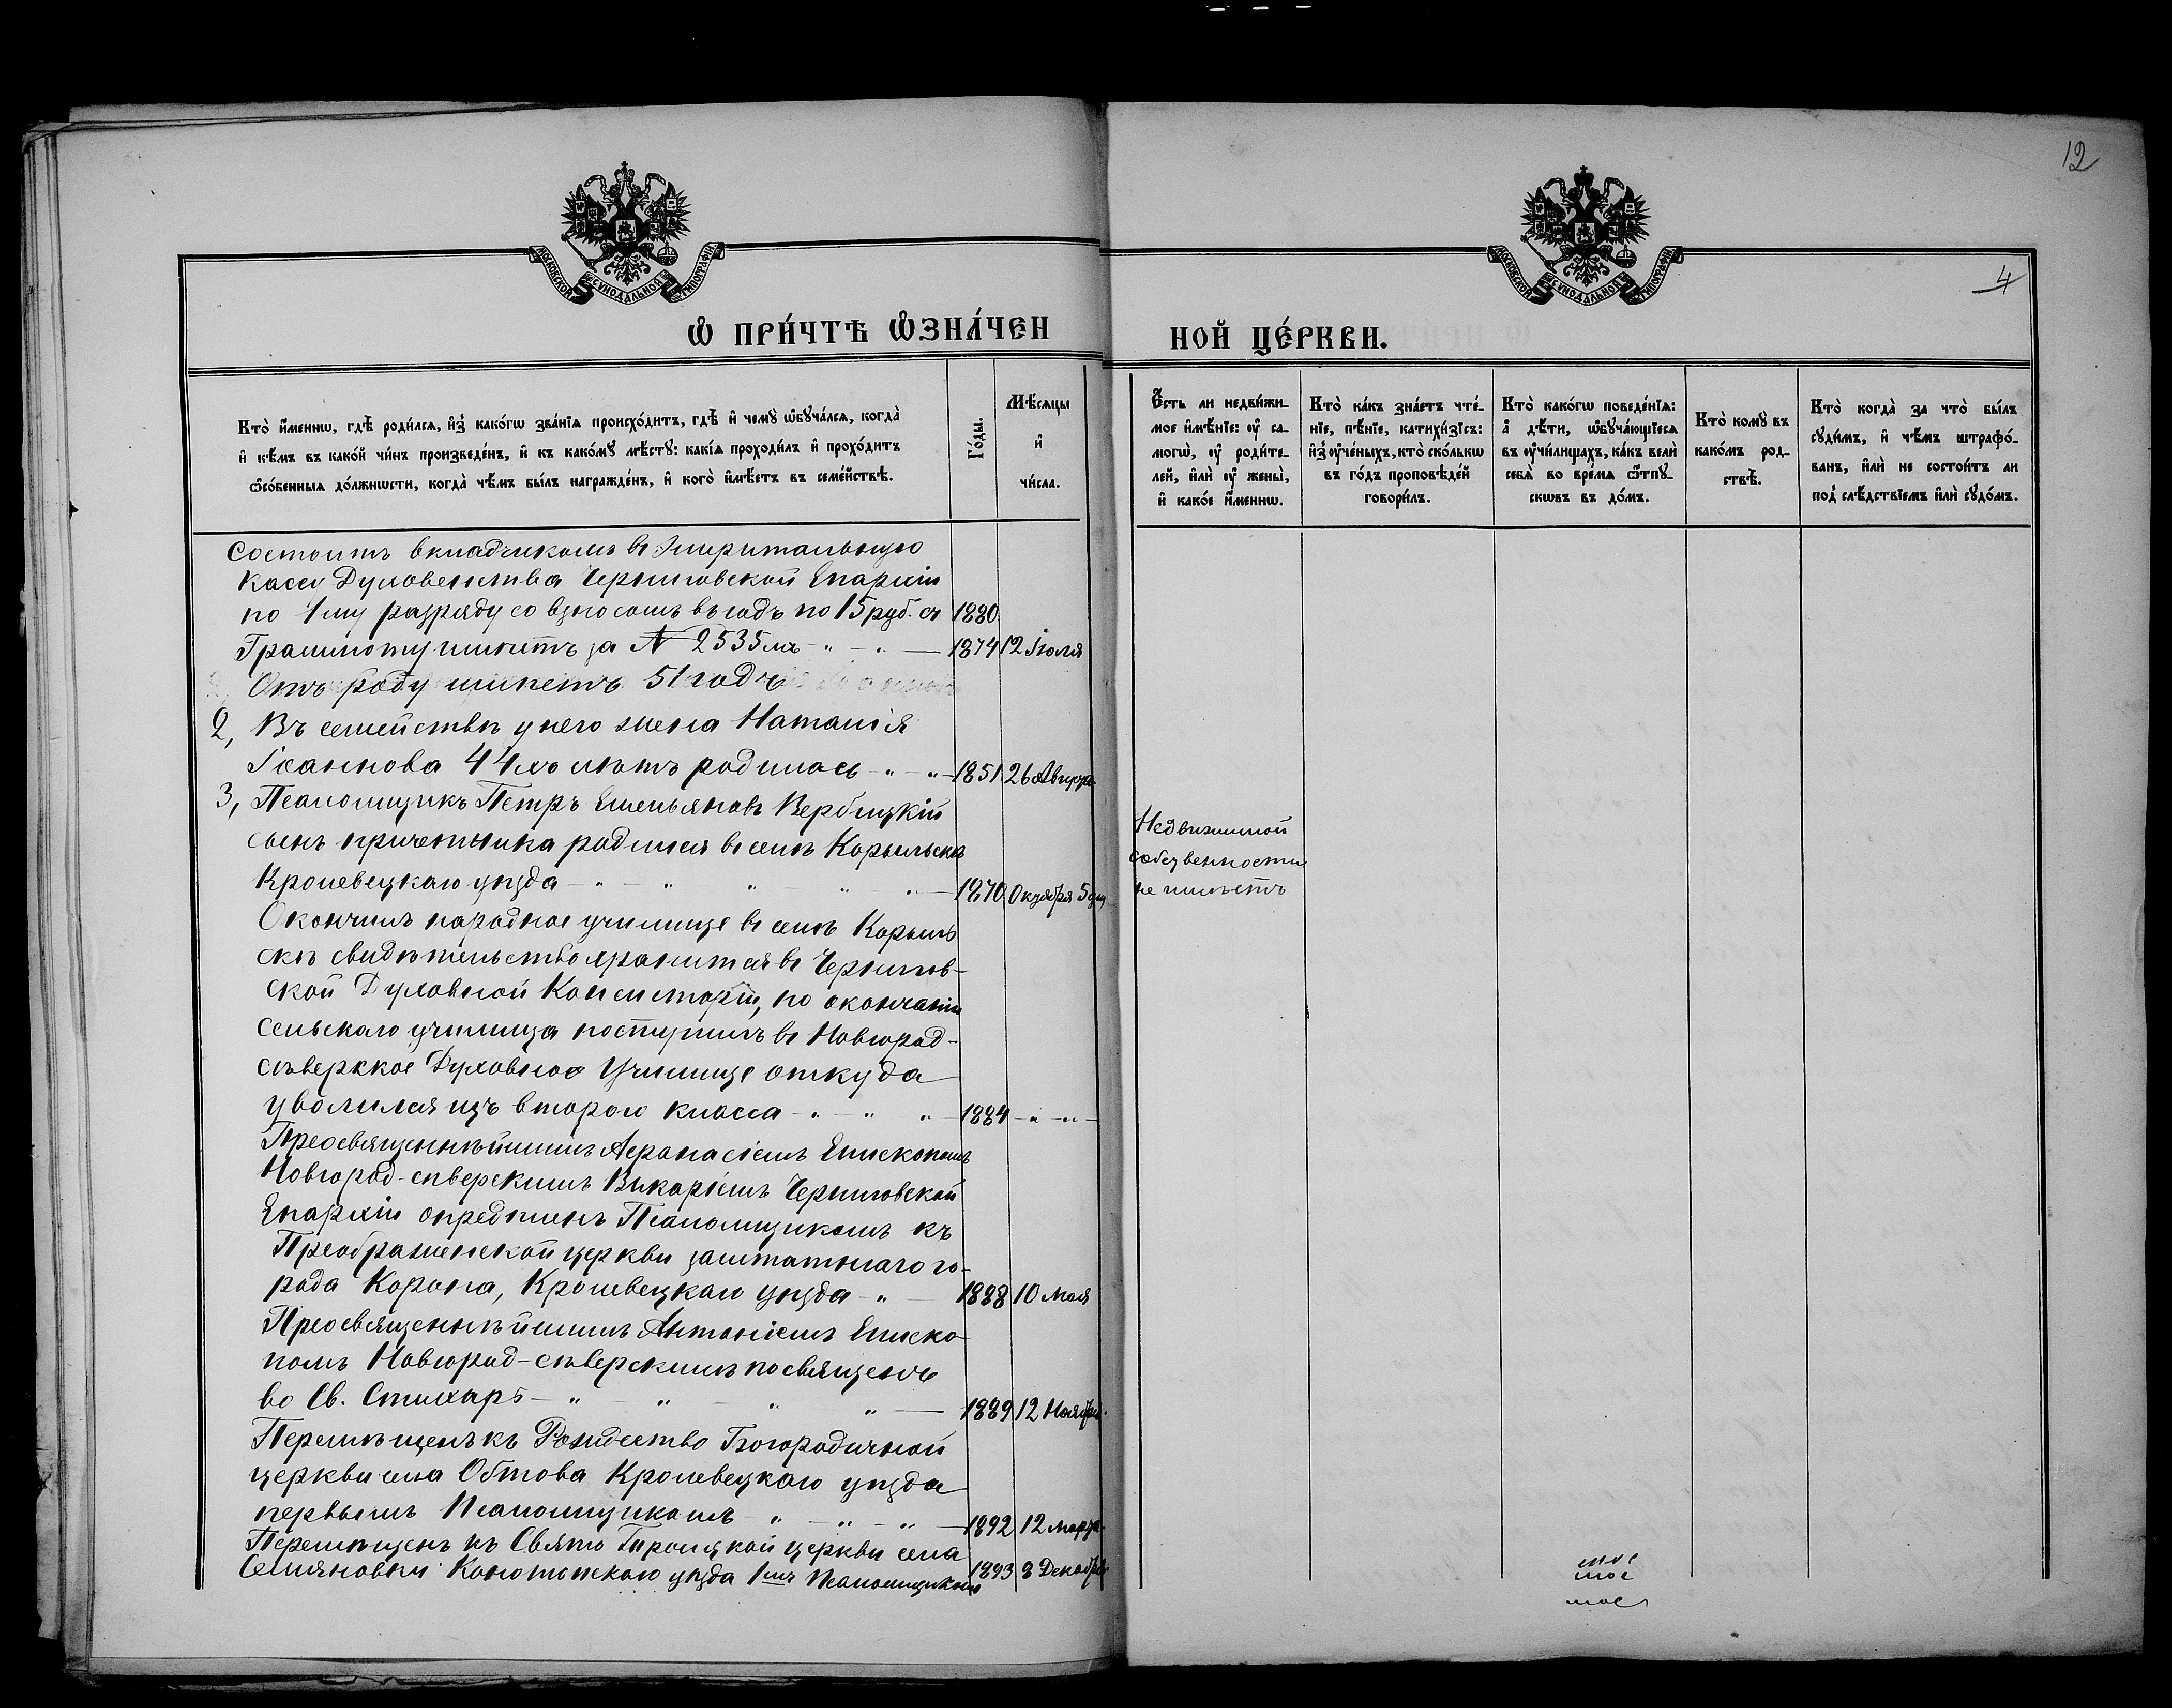 12
4
МОСКОВСКОЙ СУНОДАЛЬНОЙ ТИПОГРАФІИ
МОСКОВСКОЙ СУНОДАЛЬНОЙ ТИПОГРАФІИ
Ѡ ПРИ́ЧТѢ ѠЗНА́ЧЕН
НОЙ ЦЕ́РКВИ.
Кто̀ и҆́меннѡ, гдѣ̀ роди́лся, и҆з̾ како́гѡ зва́нїя происхо́дитъ, гдѣ̀ и҆ чемꙋ̀ ѡ҆бꙋча́лся, когда̀
и҆ кѣ́мъ въ како́й чи́нъ произведе́нъ, и҆ къ како́мꙋ мѣ́стꙋ: какі́я проходи́лъ и҆ прохо́дитъ
ѻ҆со́бенныя до́лжнѡсти, когда̀ чѣ́мъ бы́лъ награжде́нъ, и҆ кого̀ и҆мѣ́етъ въ семе́йствѣ.
Го́ды.
Мѣ́сяцы
и҆
чи́сла.
Є҆́сть ли недви́жи-
мое и҆мѣ́нїе: оу҆ са-
могѡ̀, оу҆ роди́те-
лей, и҆лѝ оу҆ жены̀,
и҆ како́е и҆́меннѡ.
Кто̀ ка́къ зна́етъ чте́-
нїе, пѣ́нїе, катихи́зїсъ:
и҆з̾ оу҆че́ныхъ, кто̀ ско́лькѡ
въ го́дъ проповѣ́дей
говори́лъ.
Кто̀ како́гѡ поведе́нїя:
а҆ дѣ́ти, ѡ҆бꙋча́ющїеся
въ оу҆чи́лищахъ, ка́къ велѝ
себѧ̀ во вре́мя ѿпꙋ-
скѡвъ въ до́мъ.
Кто̀ комꙋ̀ въ
како́мъ род-
ствѣ̀.
Кто̀ когда̀ за что̀ бы́лъ
сꙋди́мъ, и҆ чѣ́мъ штрафо́-
ванъ, и҆лѝ не состои́тъ ли
под̾ слѣ́дствїемъ и҆лѝ сꙋдо́мъ.
Состоитъ вкладчикомъ въ Эмеритальную
кассу Духовенства Черниговской Епархіи
по 1му разряду со взносомъ въ годъ по 15 руб. съ 1880
Грамоту имѣетъ за № 2535мъ 1874 12 Іюля
Отъ роду имѣетъ 51 годъ
2, Въ семействѣ у него жена Наталія
Іоаннова 44хъ лѣтъ родилась 1851 26 Августа
3, Псаломщикъ Петръ Емельяновъ Вербицкій
сынъ причетника родился въ селѣ Корыльскѣ
Кролевецкаго уѣзда 1870 Октября 5 дня
Недвижимой
собственности
не имѣетъ
Окончилъ народное училище въ селѣ Корыль
скѣ свидѣтельство хранится въ Чернигов-
ской Духовной Консисторіи, по окончаніи
сельскаго училища поступилъ въ Новгород-
сѣверкое Духовное Училище откуда
уволился изъ второго класса 1884
Преосвященнѣйшимъ Афанасіемъ Епископомъ
Новгород-сѣверскимъ Викаріемъ Черниговской
Епархіи опредѣленъ Псаломщикомъ къ
Преображенской церкви заштатнаго го-
рода Коропа, Кролевецкаго уѣзда 1888 10 Мая
Преосвященнѣйшимъ Антоніемъ Еписко
помъ Новгород-сѣверскимъ посвященъ
во Св. Стихарь 1889 12 Ноября
Перемѣщенъ къ Рождество Богородичной
церкви села Обтова Кролевецкаго уѣзда
первымъ Псаломщикомъ 1892 12 Марта
Перемѣщенъ къ Свято Троицкой церкви села
Семяновки Конотопскаго уѣзда 1мъ Псаломщикомъ 1893 8 Декабря